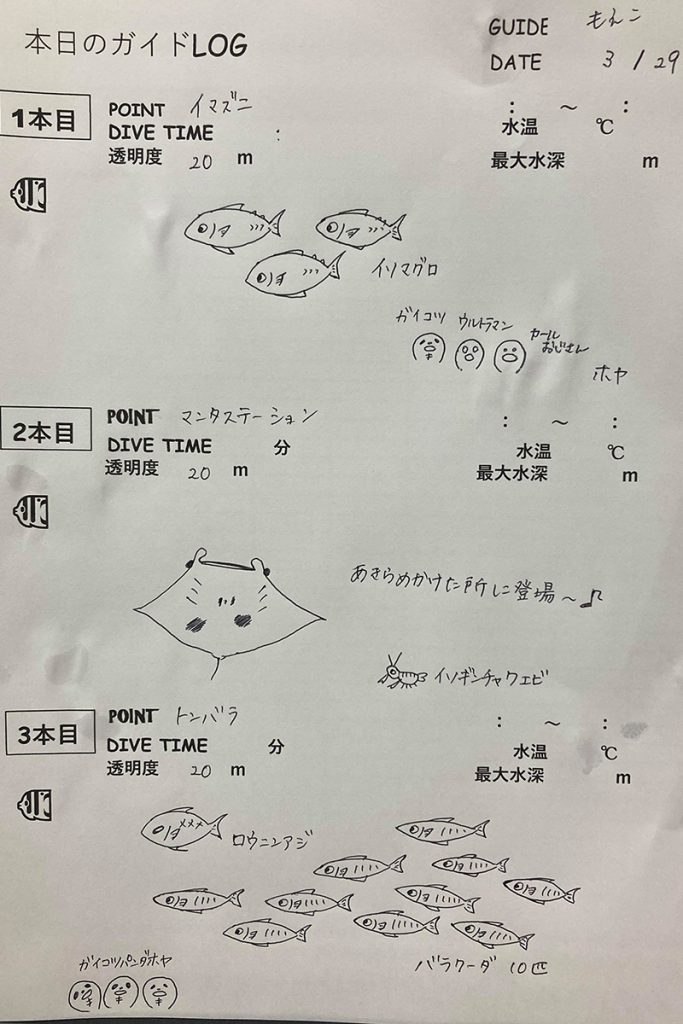 本日のガイドLOG
GUIDE もんこ
DATE 3 / 29
1本目
POINT イマズニ
: ～ :
DIVE TIME :
水温 ℃
透明度 20 m
最大水深 m
イソマグロ
ガイコツ ウルトラマン カールおじさん
ホヤ
2本目
POINT マンタステーション
: ～ :
DIVE TIME 分
水温 ℃
透明度 20 m
最大水深 m
あきらめかけた所に登場～♪
イソギンチャクエビ
3本目
POINT トンバラ
: ～ :
DIVE TIME 分
水温 ℃
透明度 20 m
最大水深 m
ロウニンアジ
バラクーダ 10匹
ガイコツパンダホヤ